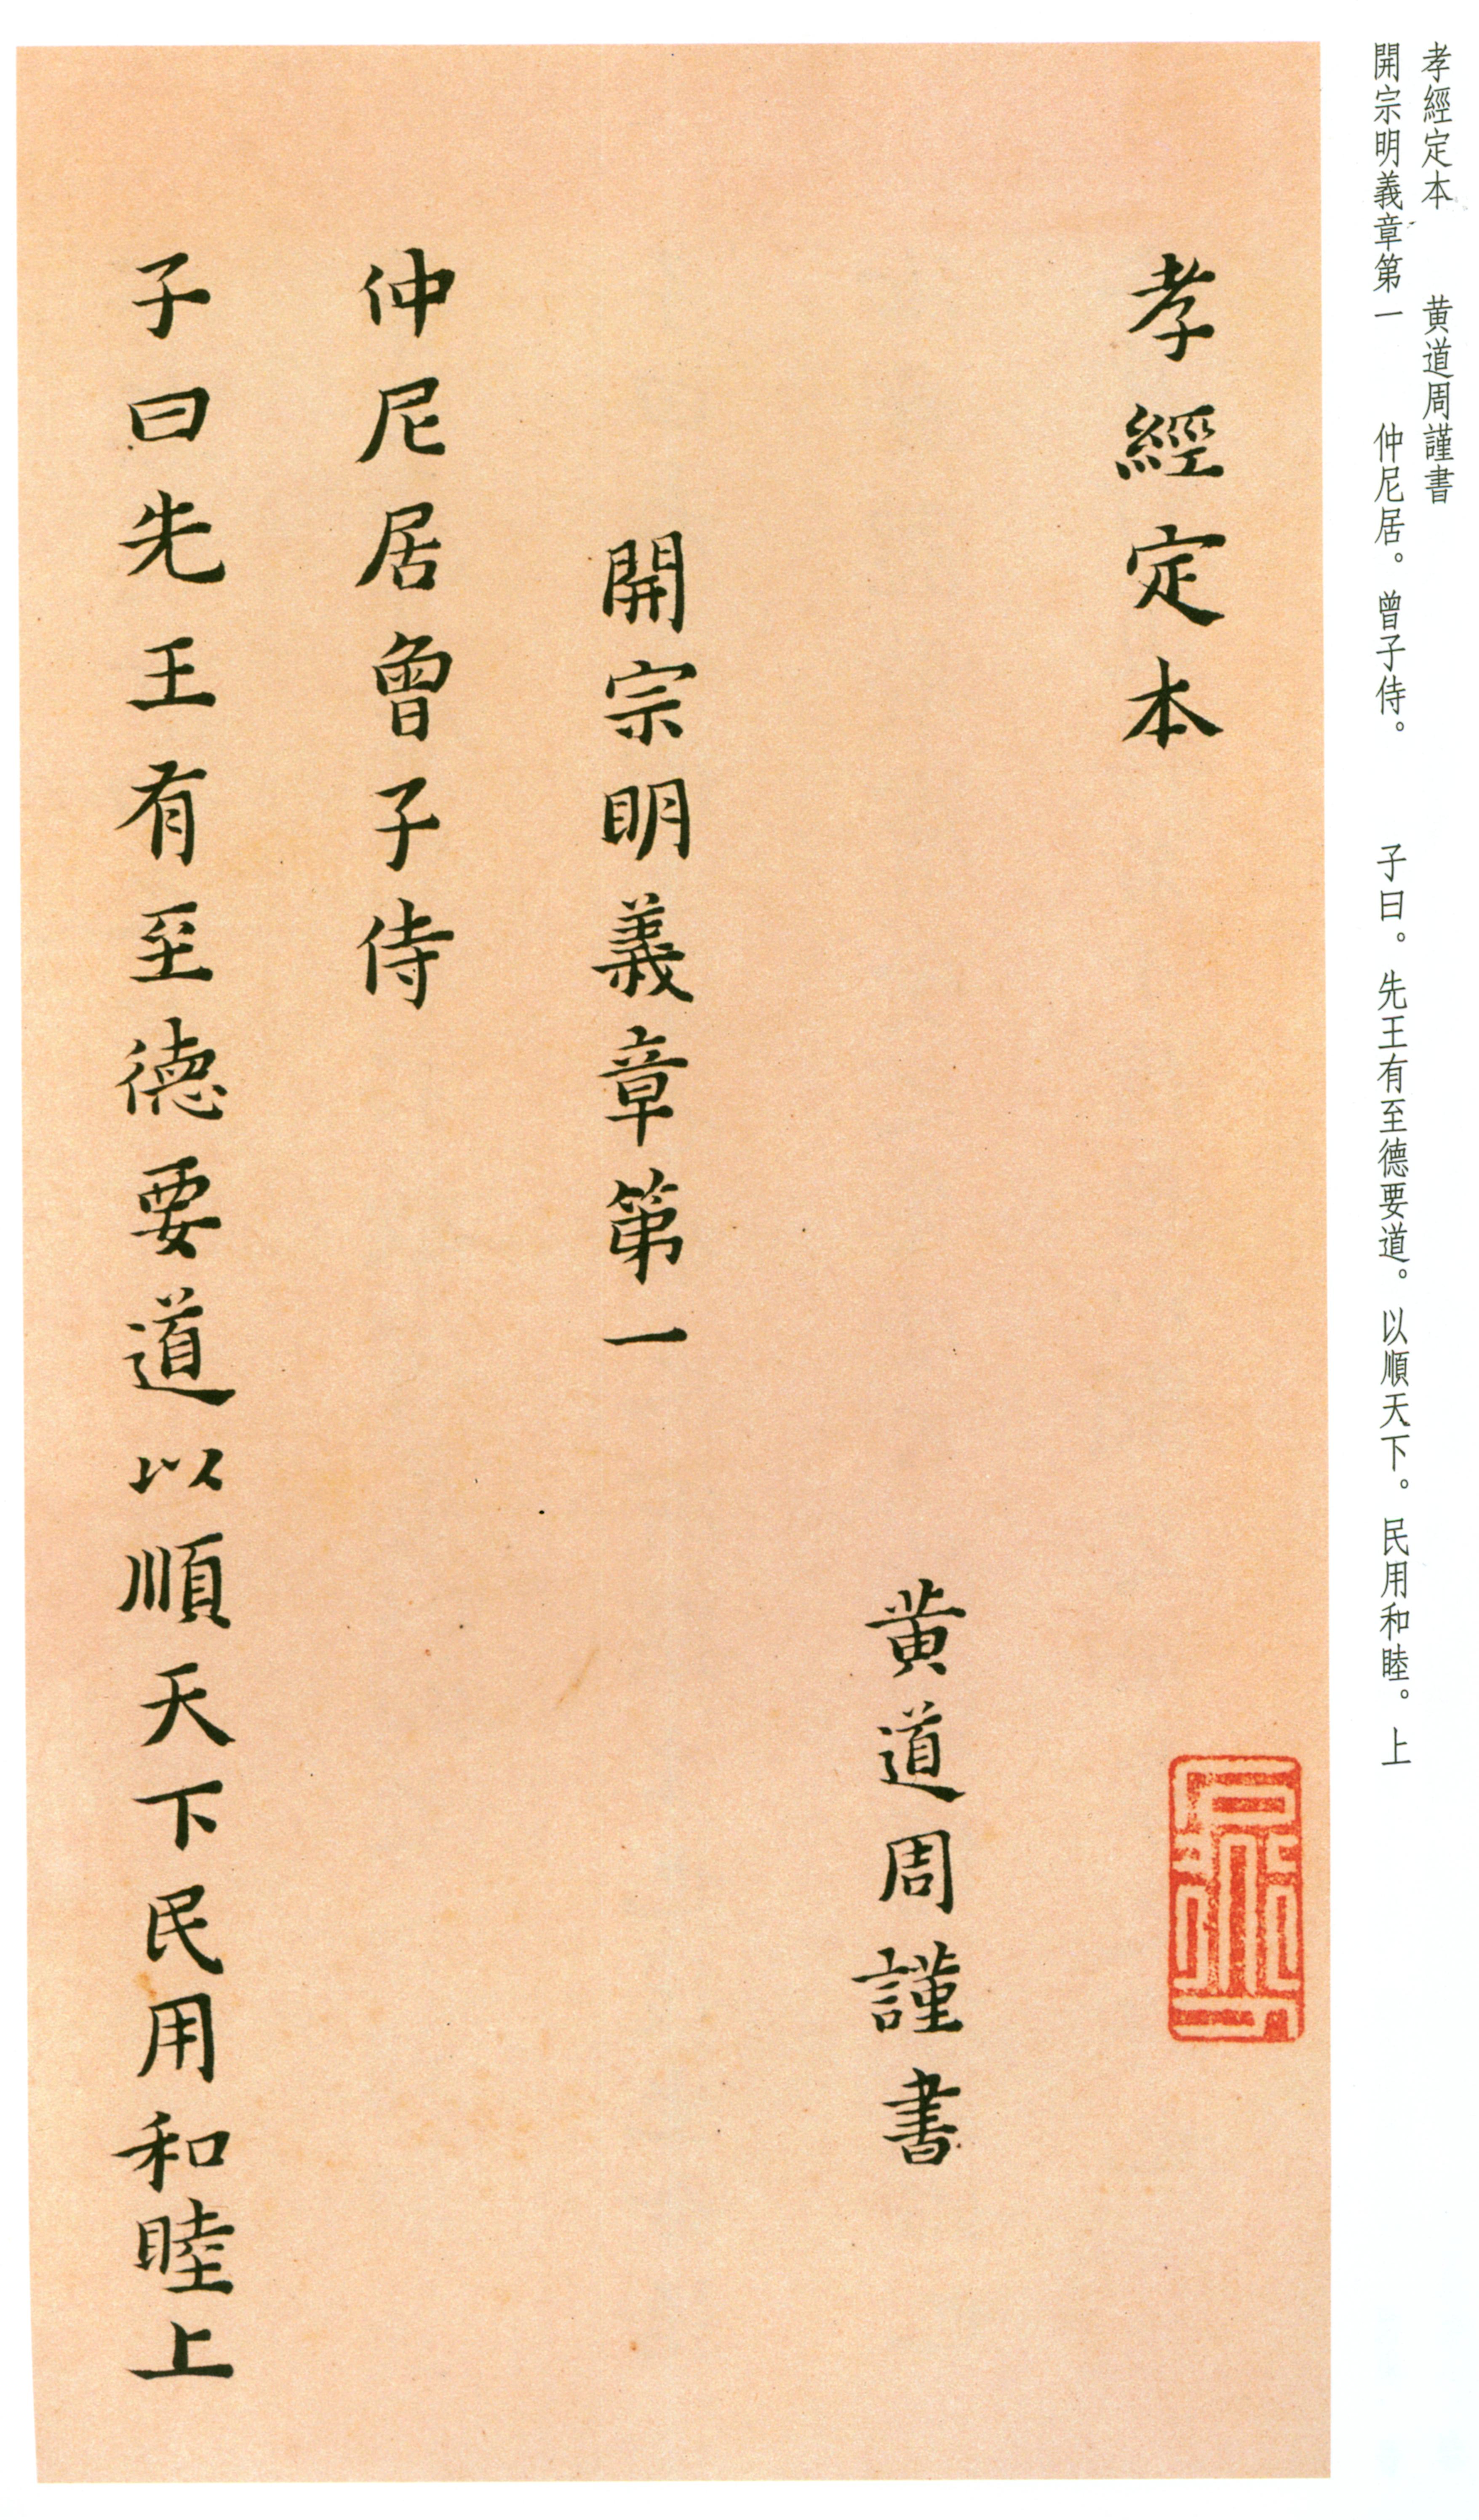 孝經定本　黃道周謹書
開宗明義章第一　仲尼居。曾子侍。　子曰。先王有至德要道。以順天下。民用和睦。上
孝經定本
黃道周謹書
開宗明義章第一
仲尼居曾子侍
子曰先王有至德要道以順天下民用和睦上